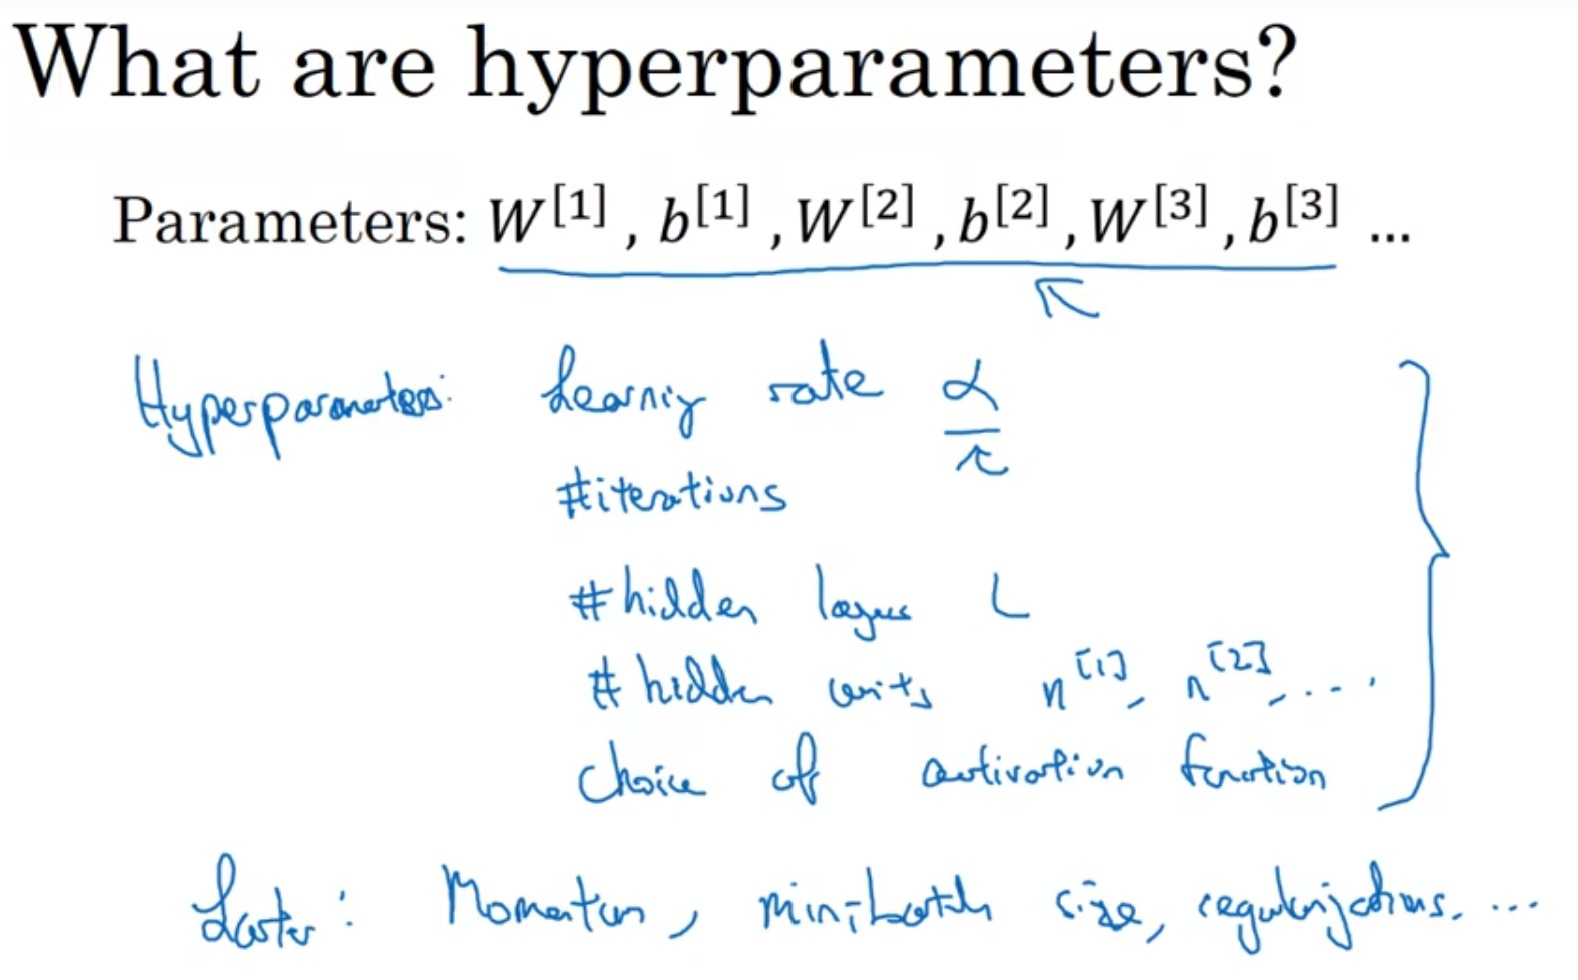 What are hyperparameters?
Parameters: W[1] , b[1] , W[2] , b[2] , W[3] , b[3] ...
Hyperparameters: Learning rate α
#iterations
#hidden layers L
# hidden units n[1], n[2], ....
Choice of activation function
Later: Momentum, mini-batch size, regularizations. ...